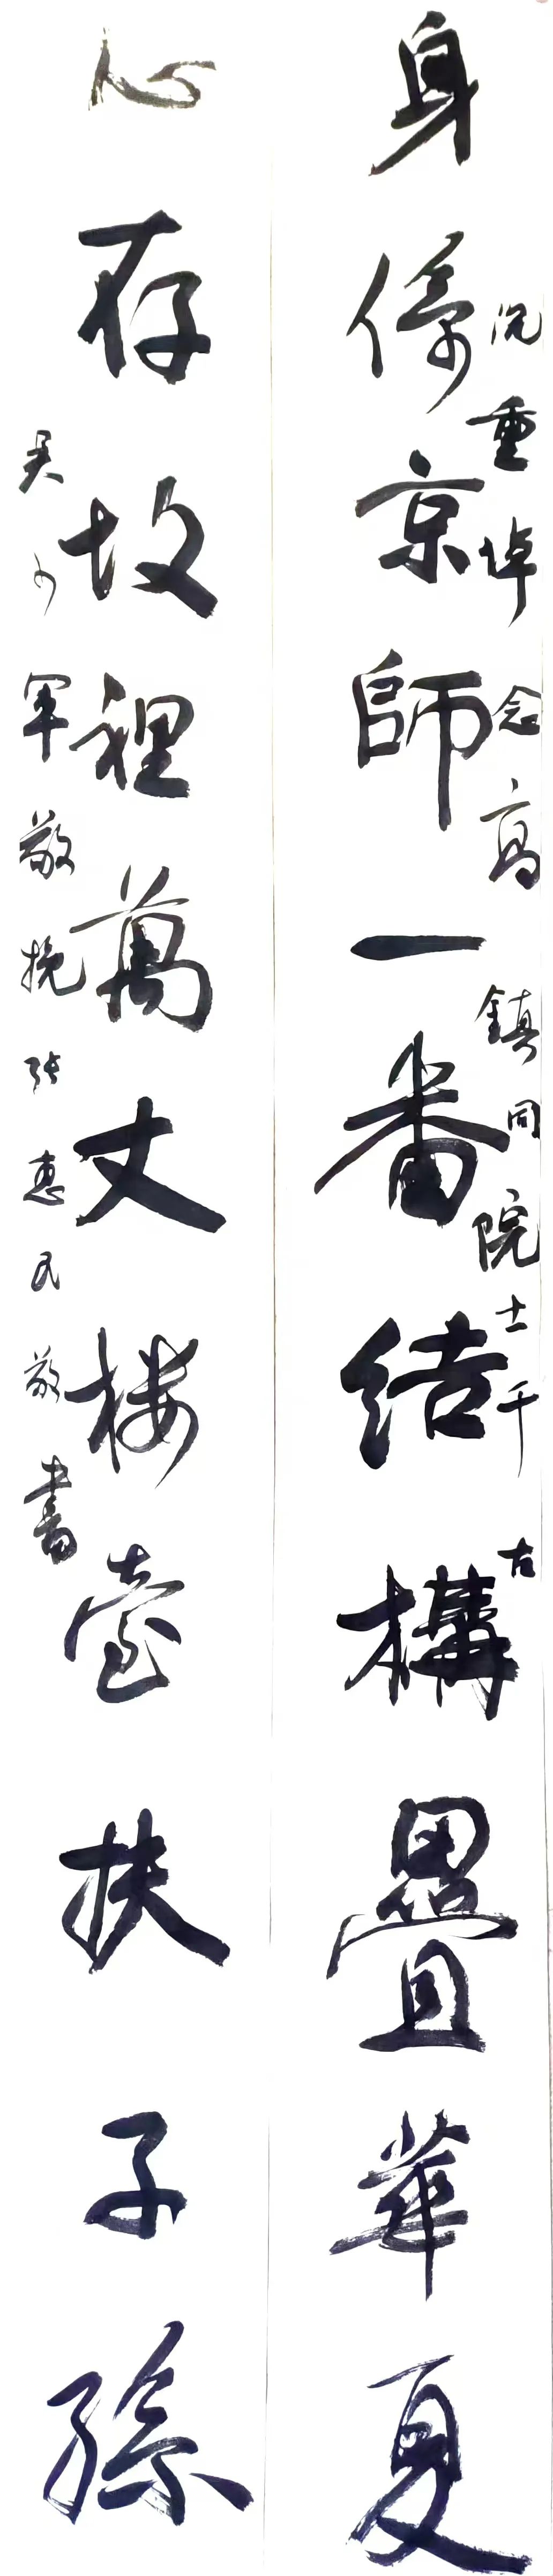 身倚京師一番結構疊華夏
沉重悼念高鎮同院士千古
心存故裡萬丈樓臺扶子孫
吴少軍敬挽張惠民敬書